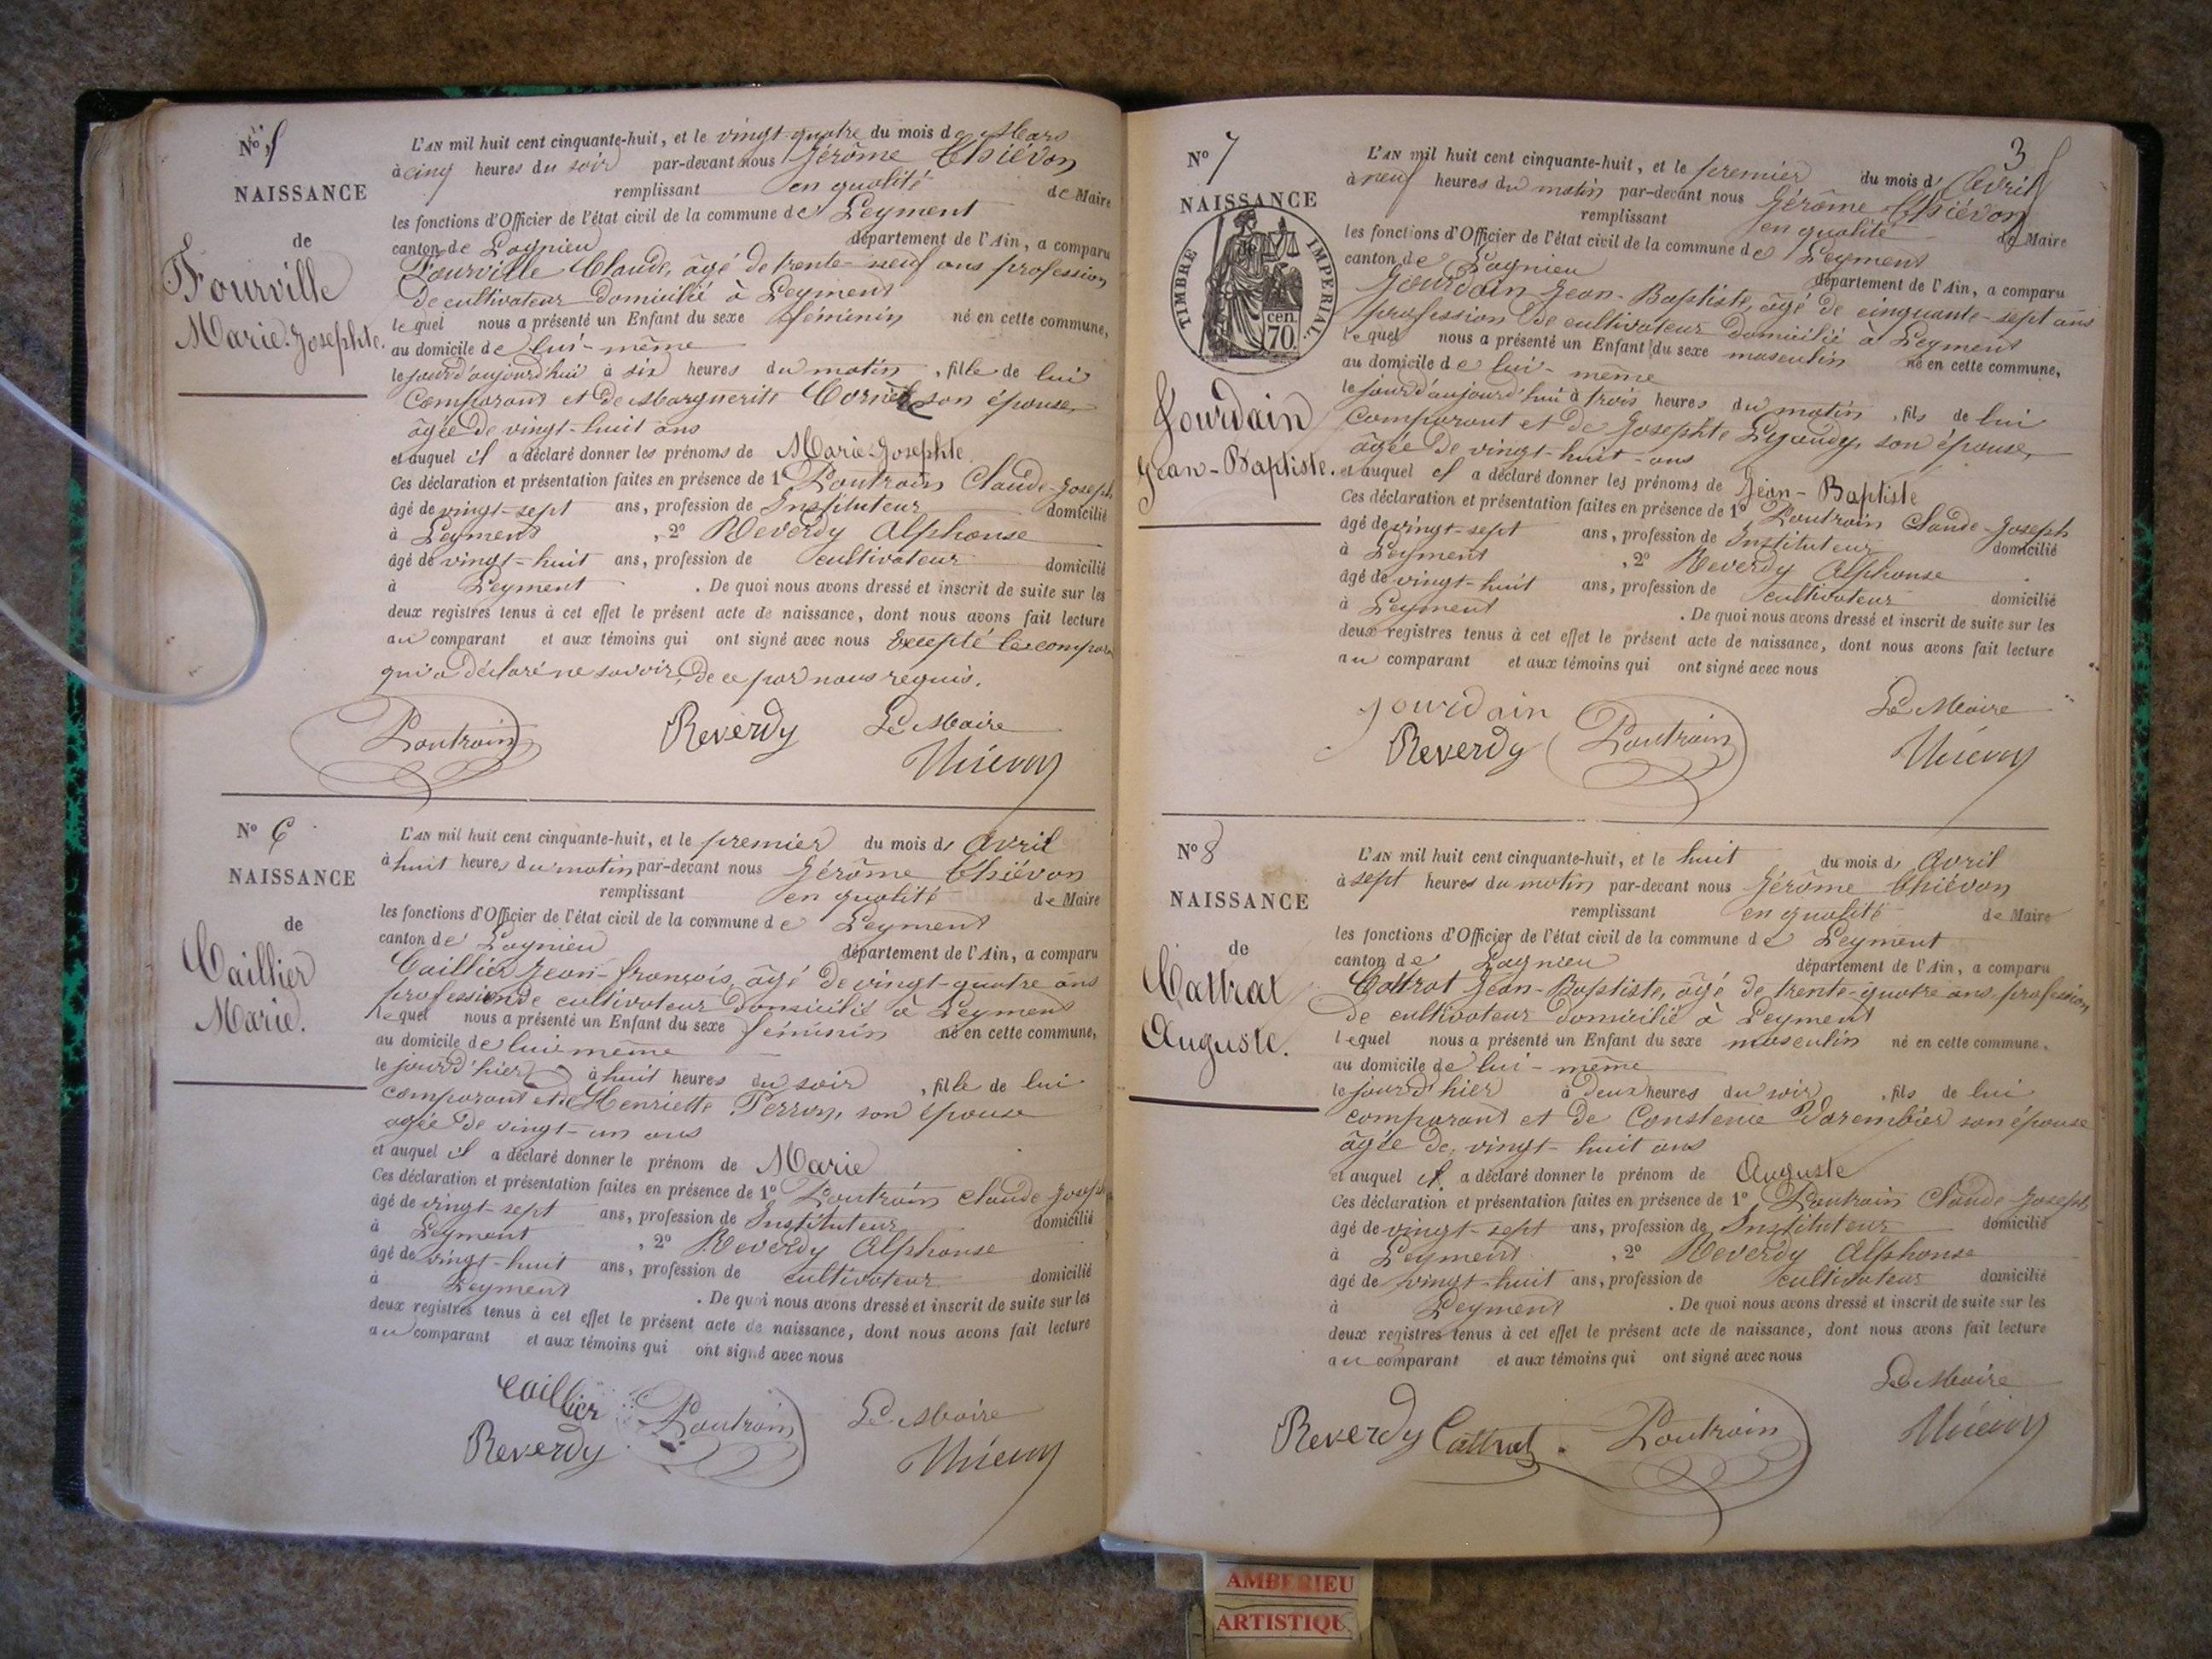 N° 5
NAISSANCE
de
Fourville
Marie-Josephte.
L'AN mil huit cent cinquante-huit, et le vingt-quatre du mois de Mars
à cinq heures du soir par-devant nous Jérôme Thiévon
remplissant en qualité de Maire
les fonctions d'Officier de l'état civil de la commune de Leyment
canton de Lagnieu département de l'Ain, a comparu
Fourville Claude, âgé de trente-neuf ans profession
de cultivateur domicilié à Leyment
lequel nous a présenté un Enfant du sexe féminin né en cette commune,
au domicile de lui-même
le jour d'aujourd'hui à six heures du matin, fille de lui
Comparant et de Marguerite son épouse,
âgée de vingt-huit ans
et auquel il a déclaré donner les prénoms de Marie-Josephte
Ces déclaration et présentation faites en présence de 1° Poutrain Claude-Joseph
âgé de vingt-sept ans, profession de Instituteur domicilié
à Leyment, 2° Reverdy Alphonse
âgé de vingt-huit ans, profession de cultivateur domicilié
à Leyment. De quoi nous avons dressé et inscrit de suite sur les
deux registres tenus à cet effet le présent acte de naissance, dont nous avons fait lecture
au comparant et aux témoins qui ont signé avec nous Excepté le compara
qui a déclaré ne savoir, de ce par nous requis.
Poutrain Reverdy Le Maire
Thiévon
N° 6
NAISSANCE
de
Caillier
Marie.
L'AN mil huit cent cinquante-huit, et le premier du mois d'Avril
à huit heures du matin par-devant nous Jérôme Thiévon
remplissant en qualité de Maire
les fonctions d'Officier de l'état civil de la commune de Leyment
canton de Lagnieu département de l'Ain, a comparu
Caillier Jean-François, âgé de vingt-quatre ans
profession de cultivateur domicilié à Leyment
lequel nous a présenté un Enfant du sexe féminin né en cette commune,
au domicile de lui-même
le jour d'hier à huit heures du soir, fille de lui
comparant et de Henriette Perron, son épouse
âgée de vingt-un ans
et auquel il a déclaré donner le prénom de Marie
Ces déclaration et présentation faites en présence de 1° Poutrain Claude-Joseph
âgé de vingt-sept ans, profession de Instituteur domicilié
à Leyment, 2° Reverdy Alphonse
âgé de vingt-huit ans, profession de cultivateur domicilié
à Leyment. De quoi nous avons dressé et inscrit de suite sur les
deux registres tenus à cet effet le présent acte de naissance, dont nous avons fait lecture
au comparant et aux témoins qui ont signé avec nous
Caillier Poutrain Le Maire
Reverdy Thiévon
3
N° 7
NAISSANCE
TIMBRE IMPERIAL.
70 cen
Jourdain
Jean-Baptiste.
L'AN mil huit cent cinquante-huit, et le premier du mois d'Avril
à neuf heures du matin par-devant nous Jérôme Thiévon
remplissant en qualité de Maire
les fonctions d'Officier de l'état civil de la commune de Leyment
canton de Lagnieu département de l'Ain, a comparu
Jourdain Jean-Baptiste, âgé de cinquante-sept ans
profession de cultivateur domicilié à Leyment
lequel nous a présenté un Enfant du sexe masculin né en cette commune,
au domicile de lui-même
le jour d'aujourd'hui à trois heures du matin, fils de lui
Comparant et de Josephte son épouse,
âgée de vingt-huit-ans
et auquel il a déclaré donner les prénoms de Jean-Baptiste
Ces déclaration et présentation faites en présence de 1° Poutrain Claude-Joseph
âgé de vingt-sept ans, profession de Instituteur domicilié
à Leyment, 2° Reverdy Alphonse
âgé de vingt-huit ans, profession de cultivateur domicilié
à Leyment. De quoi nous avons dressé et inscrit de suite sur les
deux registres tenus à cet effet le présent acte de naissance, dont nous avons fait lecture
au comparant et aux témoins qui ont signé avec nous
Jourdain Le Maire
Reverdy Poutrain Thiévon
N° 8
NAISSANCE
de
Cattrat
Auguste.
L'AN mil huit cent cinquante-huit, et le huit du mois d'Avril
à sept heures du matin par-devant nous Jérôme Thiévon
remplissant en qualité de Maire
les fonctions d'Officier de l'état civil de la commune de Leyment
canton de Lagnieu département de l'Ain, a comparu
Cattrat Jean-Baptiste, âgé de trente-quatre ans profession
de cultivateur domicilié à Leyment
lequel nous a présenté un Enfant du sexe masculin né en cette commune,
au domicile de lui-même
le jour d'hier à deux heures du soir, fils de lui
comparant et de Constence Darembier son épouse
âgée de vingt-huit ans
et auquel il a déclaré donner le prénom de Auguste
Ces déclaration et présentation faites en présence de 1° Poutrain Claude-Joseph
âgé de vingt-sept ans, profession de Instituteur domicilié
à Leyment, 2° Reverdy Alphonse
âgé de vingt-huit ans, profession de cultivateur domicilié
à Leyment. De quoi nous avons dressé et inscrit de suite sur les
deux registres tenus à cet effet le présent acte de naissance, dont nous avons fait lecture
au comparant et aux témoins qui ont signé avec nous
Le Maire
Reverdy Cattrat Poutrain Thiévon
AMBERIEU
ARTISTIQU